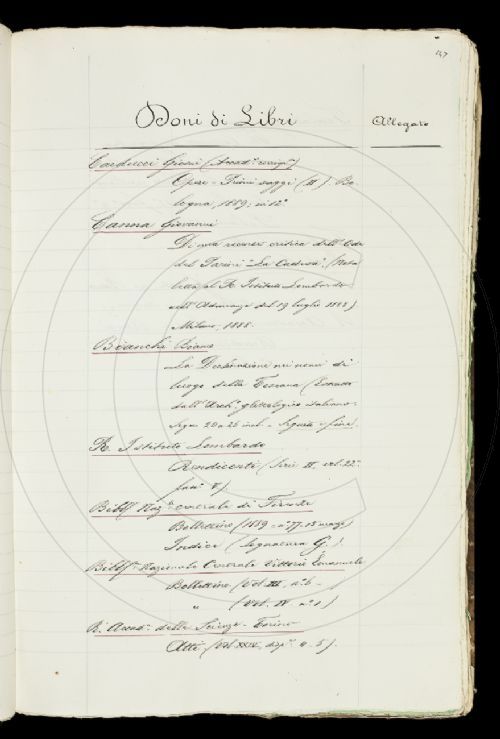 147
Doni di Libri
Allegato
Carducci Giosuè (Accad.º corrisp.)
Opere - Primi saggi (II). Bo-
logna, 1889: in 12º
Canna Giovanni
Di una recensi critica dell'Ode
del Parini "La Caduta". (Nota
letta al R. Istituto Lombardo
nell'Adunanza del 19 luglio 1888)
Milano, 1888.
Bianchi Bianco
La Declinazione nei nomi di
luogo della Toscana (Estratto
dall'Arch.º glottologico italiano.
Segue e fine.
R. Istituto Lombardo
Rendiconti (Serie II. vol. 22º
fasc. V)
Bibl.ª Naz.le centrale di Firenze
Bollettino (1889 - nº 77. 15 marzo)
Indice (Segnatura G.)
Bibl.ª Nazionale Centrale Vittorio Emanuele
Bollettino (Vol. III, nº 6 -
" (Vol. IV nº 1)
R. Accad.ª delle Scienze - Torino
Atti (Vol. XXIV, disp.e 4-5).